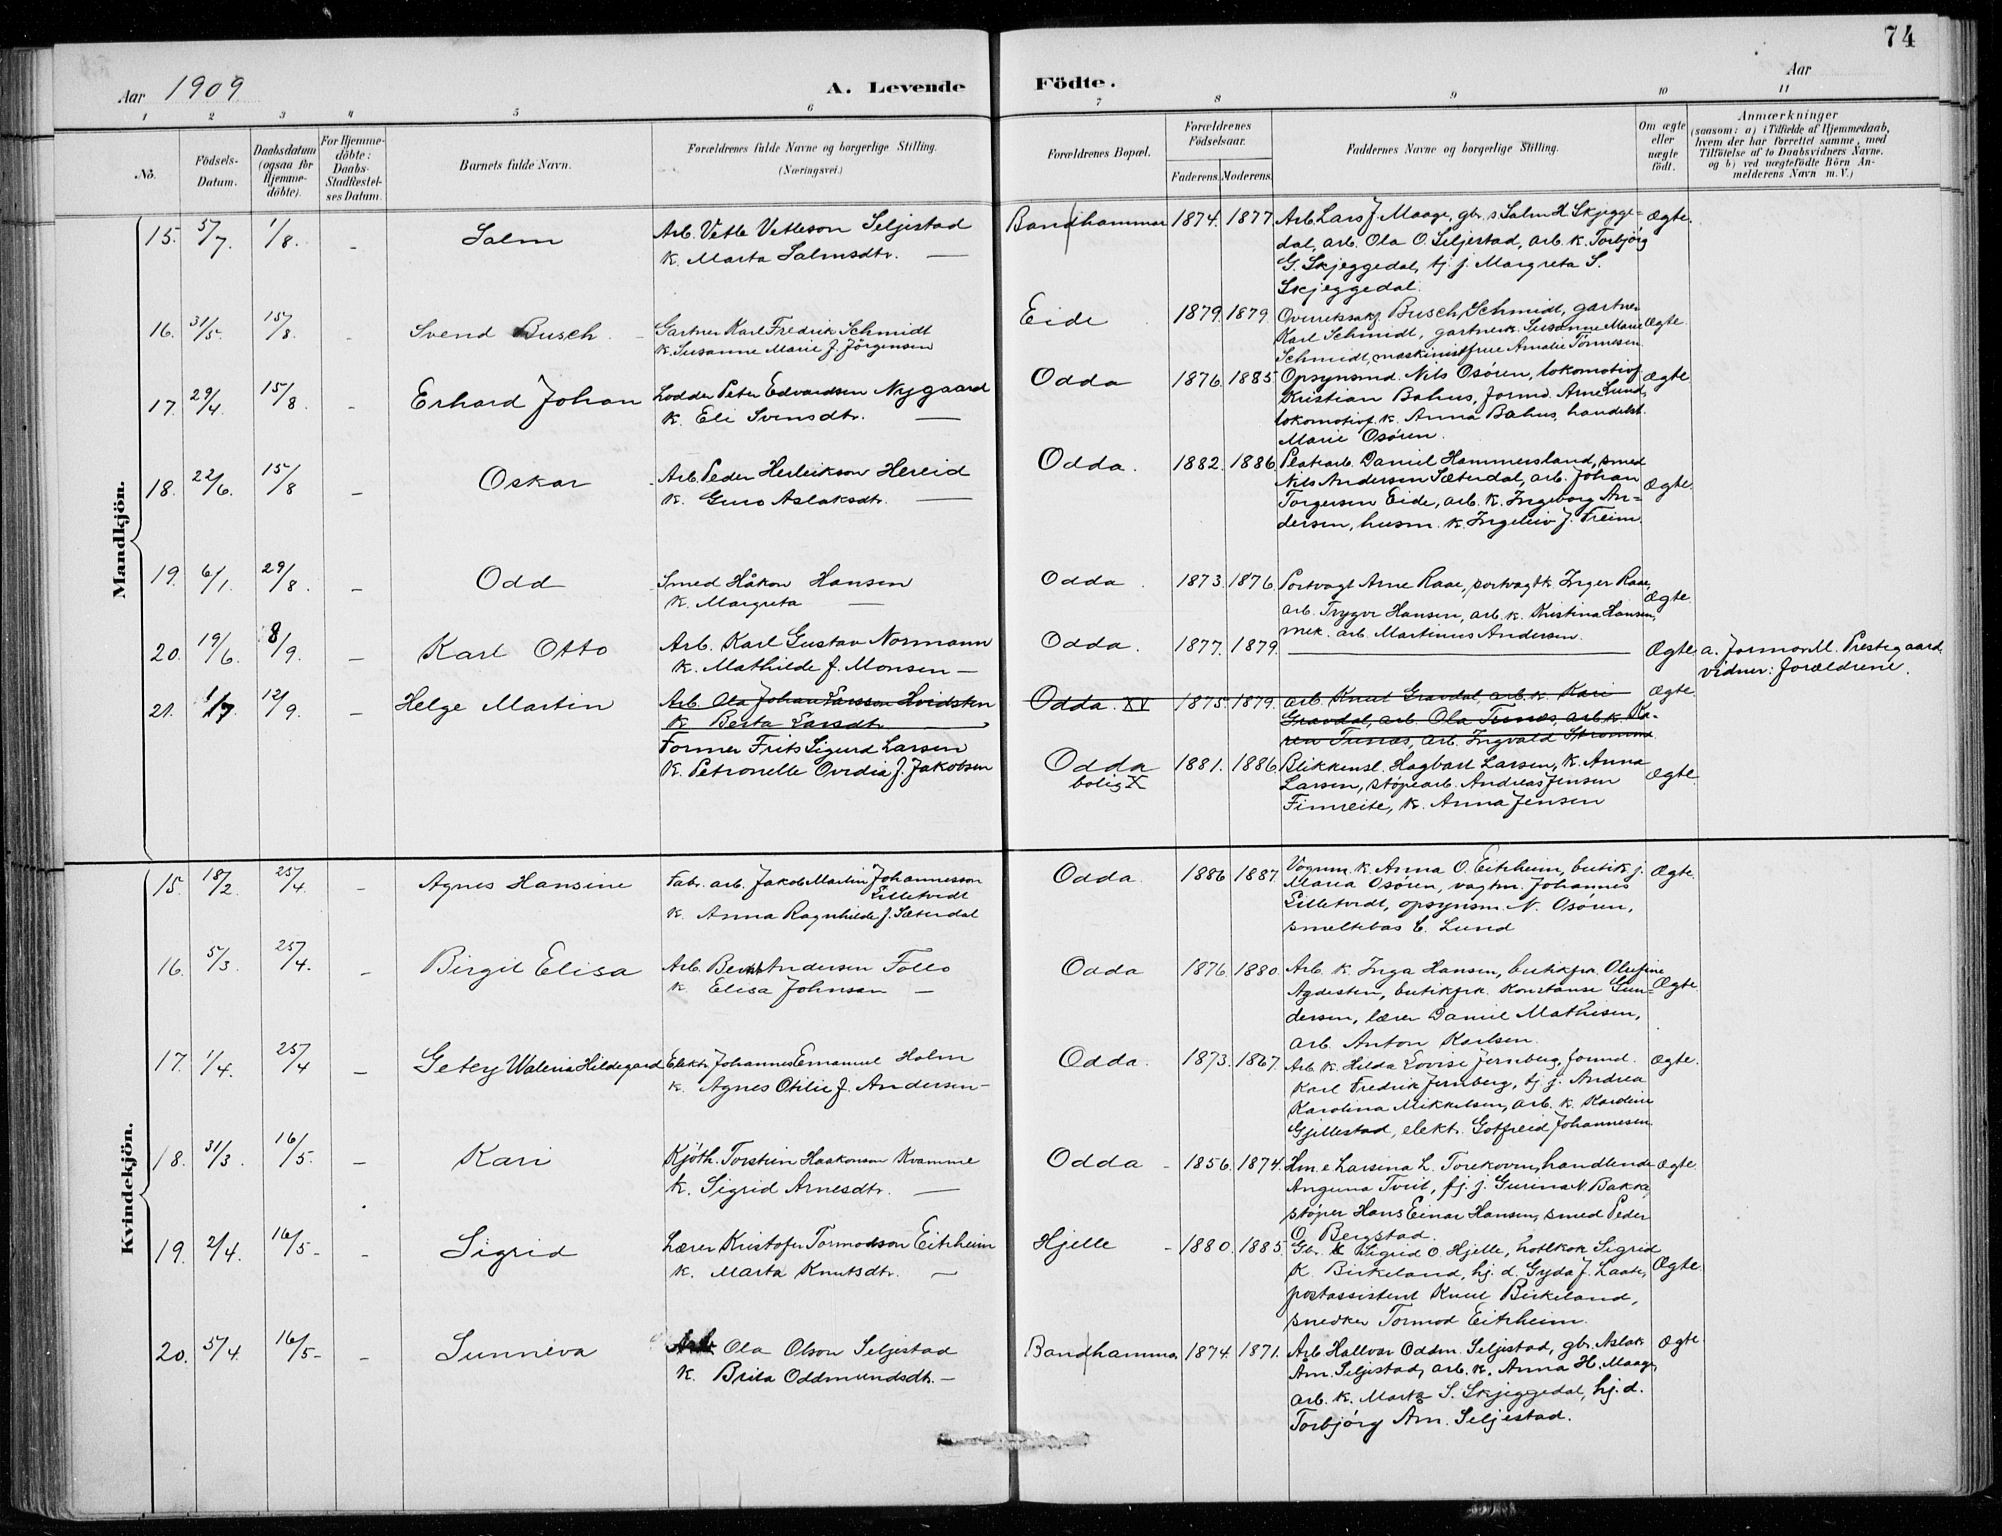 74
Aar 1909 A. Levende Födte. Aar
1 2 3 4 5 6 7 8 9 10 11
No.
Födsels-Datum.
Daabsdatum (ogsaa for Hjemme-döbte).
For Hjemme-döbte: Daabs-Stadfæstel-ses Datum.
Barnets fulde Navn.
Forældrenes fulde Navne og borgerlige Stilling.
(Næringsvei.)
Forældrenes Bopæl.
Forældrenes Födselsaar.
Faderens. Moderens.
Faddernes Navne og borgerlige Stilling.
Om ægte eller uægte födt.
Anmærkninger
(saasom: a) i Tilfælde af Hjemmedaab,
hvem der har forrettet samme, med
Tilföielse af to Daabsvidners Navne.
og b) ved uægtefödte Börn An-
melderens Navn m. V.)
Mandkjön.
15. 5/7 1/8. - Salm
Arb. Vetle Vetleson Seljestad
k. Marta Salmsdtr. —
Bandhammar 1874. 1877.
Arb. Lars J. Maage, gbr. s. Salm H. Skjegge-
dal, arb. Ola O. Seljestad, arb. k. Torbjørg
G. Skjeggedal, tj. j. Margreta S.
Skjeggedal.
Ægte.
16. 31/5. 15/8. - Svend Busch.
Gartner Karl Fredrik Schmidt
k. Susanne Marie J. Jörgensen
Eide 1879. 1879.
Overretssakf. Busch, Schmidt, gartner
Karl Schmidt, gartnerk. Susanne Marie
Schmidt, maskinistfrue Amalie Tönnesen.
Ægte.
17. 29/4. 15/8. - Erhard Johan
Lodder Peter Edvardsen Nygaard
k. Eli Svensdtr. —
Odda 1876. 1885.
Opsynsmd. Nils Osören, lokomotivf.
Kristian Bahus, formd. Arne Lund,
lokomotivf. k. Anna Bahus, handelsb.
Marie Osören.
Ægte.
18. 22/6. 15/8 - Oskar
Arb. Peder Herleikson Hereid
k. Guro Aslaksdtr. —
Odda. 1882. 1886.
Platearb. Daniel Hammersland, smed
Nils Andersen Sæterdal, arb. Johan
Torgersen Eide, arb. k. Ingeborg An-
dersen, husm. k. Ingeleiv J. Freim.
Ægte.
19. 6/1. 29/8. - Odd
Smed Håkon Hansen
k. Margreta —
Odda. 1873. 1876.
Portvagt Arne Raae, portvagtk. Inger Raae,
arb. Trygve Hansen, arb. k. Kristina Hansen,
mek. arb. Martinus Andersen.
Ægte.
20. 19/6. 8/9. - Karl Otto
Arb. Karl Gustav Normann
k. Mathilde J. Monsen —
Odda. 1877. 1879. —
Ægte. a. Jormor M. Prestegaard.
vidner: forældrene.
21. 1/7 12/9. - Helge Martin
Arb. Ola Johan Larsson Hvidsten
k. Berta Larsdtr.
Odda. XV 1875. 1879.
arb. Knut Gravdal, arb. k. Kari
Gravdal, arb. Ola Tunæs, arb. k. Ka-
ren Tunæs, arb. Ingvald Strømme.
Ægte.
Former Frits Sigurd Larsen
k. Petronelle Ovidia J. Jakobsen
Odda
bolig X
1881. 1886.
Blikkensl. Hagbart Larsen, k. Anna
Larsen, støpearb. Andreas Jensen
Fimreite, k. Anna Jensen
Ægte.
Kvindekjön.
15. 18/2. 25/4. - Agnes Hansine
Fabr. arb. Jakob Martin Johannesson
Lilletvedt
k. Anna Ragnhilde J. Sæterdal
Odda. 1886. 1887.
Vognm. k. Anna O. Eitrheim, butikj.
Maria Osören, vagtm. Johannes
Lilletvedt, opsynsm. N. Osören,
smeltebas E. Lund
Ægte.
16. 5/3. 25/4. - Birgit Elisa
Arb. Bernt Andersen Follo
k. Elisa Johnsen —
Odda 1876. 1880.
Arb. k. Inga Hansen, butikfrk. Olufine
Agdesten, butikfrk. Konstanse Gun-
dersen, lærer Daniel Mathisen,
arb. Anton Karlsen.
Ægte.
17. 1/4. 25/4 - Getey Waleria Hildegard
Elektr. Johannes Emanuel Holm
k. Agnes Otilie J. Andersen —
Odda. 1873. 1867.
Arb. k. Hilda Lovise Jernberg, formd.
Karl Fredrik Jernberg, tj. j. Andrea
Karolina Mikkelsen, arb. k. Kardine
Gjillestad, elektr. Gotfreid Johannesen.
Ægte.
18. 31/3. 16/5. - Kari
Kjøth. Torstein Haakonson Kvamme
k. Sigrid Arnesdtr. —
Odda - 1856. 1874.
Hm. e. Larsina L. Torekoven, handlende
Anguna Tveit, tj. j. Gurina N. Bakke,
støper Hans Einar Hansen, smed Peder
O. Bergstad.
Ægte.
19. 2/4. 16/5. - Sigrid
Lærer Kristofer Tormodson Eitrheim
k. Marta Knutsdtr. —
Hjelle - 1880. 1885.
Gbr. k. Sigrid O. Hjelle, hotlkok Sigrid
K. Birkeland, hj. d. Gyda J. Laate,
postassistent Knut Birkeland,
snedker Tormod Eitrheim.
Ægte.
20. 5/4. 16/5. - Sunniva
Arb. Ola Olson Seljestad
k. Brita Oddmundsdtr. —
Bandhammar 1874. 1871.
Arb. Hallvar Oddm. Seljestad, gbr. Aslak
Am. Seljestad, arb. k. Anna H. Maage,
arb. k. Marta S. Skjeggedal, hj. d.
Torbjörg Am. Seljestad.
Ægte.